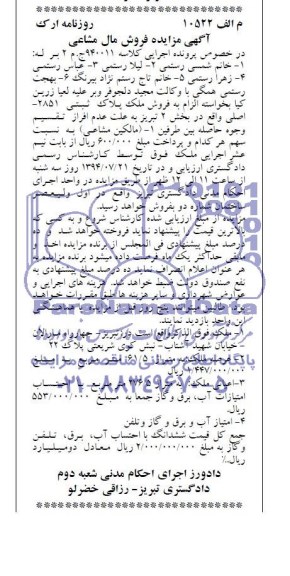 م الف ۱۰۵۲۲ روزنامه ارک
آگهی مزایده فروش مال مشاعی
در خصوص پرونده اجرایی کلاسه ۹۴۰۰۱۱ج م ۲ بر له:
۱- خانم شمسی رستمی ۲- لیلا رستمی ۳- عباس رستمی
۴- زهرا رستمی ۵- خانم تاج رستم نژاد بیرنگ ۶- بهجت
رستمی همگی با وکالت مجید دلجوفر وبر علیه لعیا زرین
کیا بخواسته الزام به فروش ملک پلاک ثبتی ۲۸۵۱-
اصلی واقع در بخش ۲ تبریز به علت عدم افراز تقسیم
وجوه حاصله بین طرفین ۱- (مالکین مشاعی) به نسبت
سهم هر کدام و پرداخت مبلغ ۶۰۰/۰۰۰ ریال از بابت نیم
عشر اجرایی ملک فوق توسط کارشناس رسمی
دادگستری ارزیابی و در تاریخ ۱۳۹۴/۰۷/۲۱ روز سه شنبه
از ساعت ۱۱ الی ۱۲ ظهر از طریق مزایده در واحد اجرای
احکام مدنی دادگستری تبریز واقع در اول ولیعصر
ساختمان شماره دو بفروش خواهد رسید.
مزایده از مبلغ ارزیابی شده کارشناس شروع و به کسی که
بالاترین قیمت را پیشنهاد نماید فروخته خواهد شد. و ده
درصد مبلغ پیشنهادی فی المجلس از برنده مزایده اخذ و
مابقی حداکثر یک ماه فرصت داده میشود برنده مزایده به
هر عنوان اعلام انصراف نماید ده درصد مبلغ پیشنهادی به
نفع صندوق دولت ضبط خواهد شد. هزینه های اجرایی و
عوارض شهرداری و سایر هزینه ها طبق مقررات خواهد
بود. طالبین میتوانند پنج روز قبل از مزایده با هماهنگی
این واحد بازدید نمایند.
۱- ملک فوق الذکر واقع است در: تبریز - چهارراه
- خیابان شهید آفتاب - نبش کوی شریعتی پلاک ۲۲
۲- عرصه ملک به میزان ۶۱/۵ متر مربع به مبلغ
۱/۴۴۷/۰۰۰/۰۰۰ ریال
۳- اعیان ملک به متر مربع با احتساب
امتیازات آب، برق و گاز جمعا به مبلغ ۵۵۳/۰۰۰/۰۰۰
ریال.
۴- امتیاز آب و برق و گاز وتلفن
جمع کل قیمت ششدانگ با احتساب آب، برق، تلفن
وگاز به مبلغ ۲/۰۰۰/۰۰۰/۰۰۰ ریال معادل دومیلیارد
ریال.٪
دادورز اجرای احکام مدنی شعبه دوم
دادگستری تبریز- رزاقی خضرلو